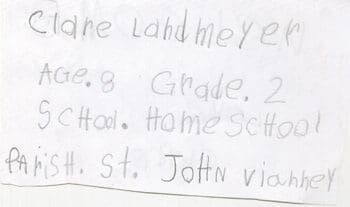 Clare Landmeyer
AGe. 8 Grade. 2
SCHool. Home SCHool
PARiSH. St. JOHN Vianney